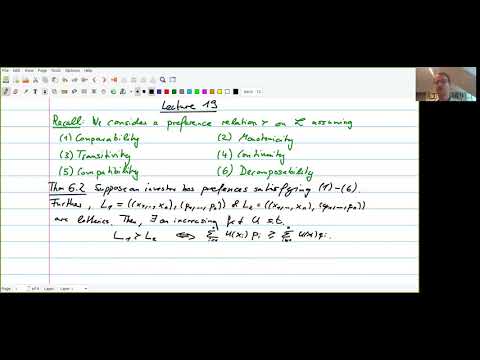 File Edit View Journal Tools Options Help
Lecture 19
Recall: We consider a preference relation ≻ on ℒ assuming
(1) Comparability (2) Monotonicity
(3) Transitivity (4) Continuity
(5) Compatibility (6) Decomposability
Thm 6.2 Suppose an investor has preferences satisfying (1)-(6).
Further, L₁ = ((x₁,..., xₙ), (p₁,..., pₙ)) & L₂ = ((x₁,..., xₙ), (q₁,..., qₙ))
are lotteries. Then, ∃ an increasing fct U s.t.
L₁ ≻ L₂ ⇔ Σ U(xᵢ) pᵢ ≥ Σ U(xᵢ) qᵢ.